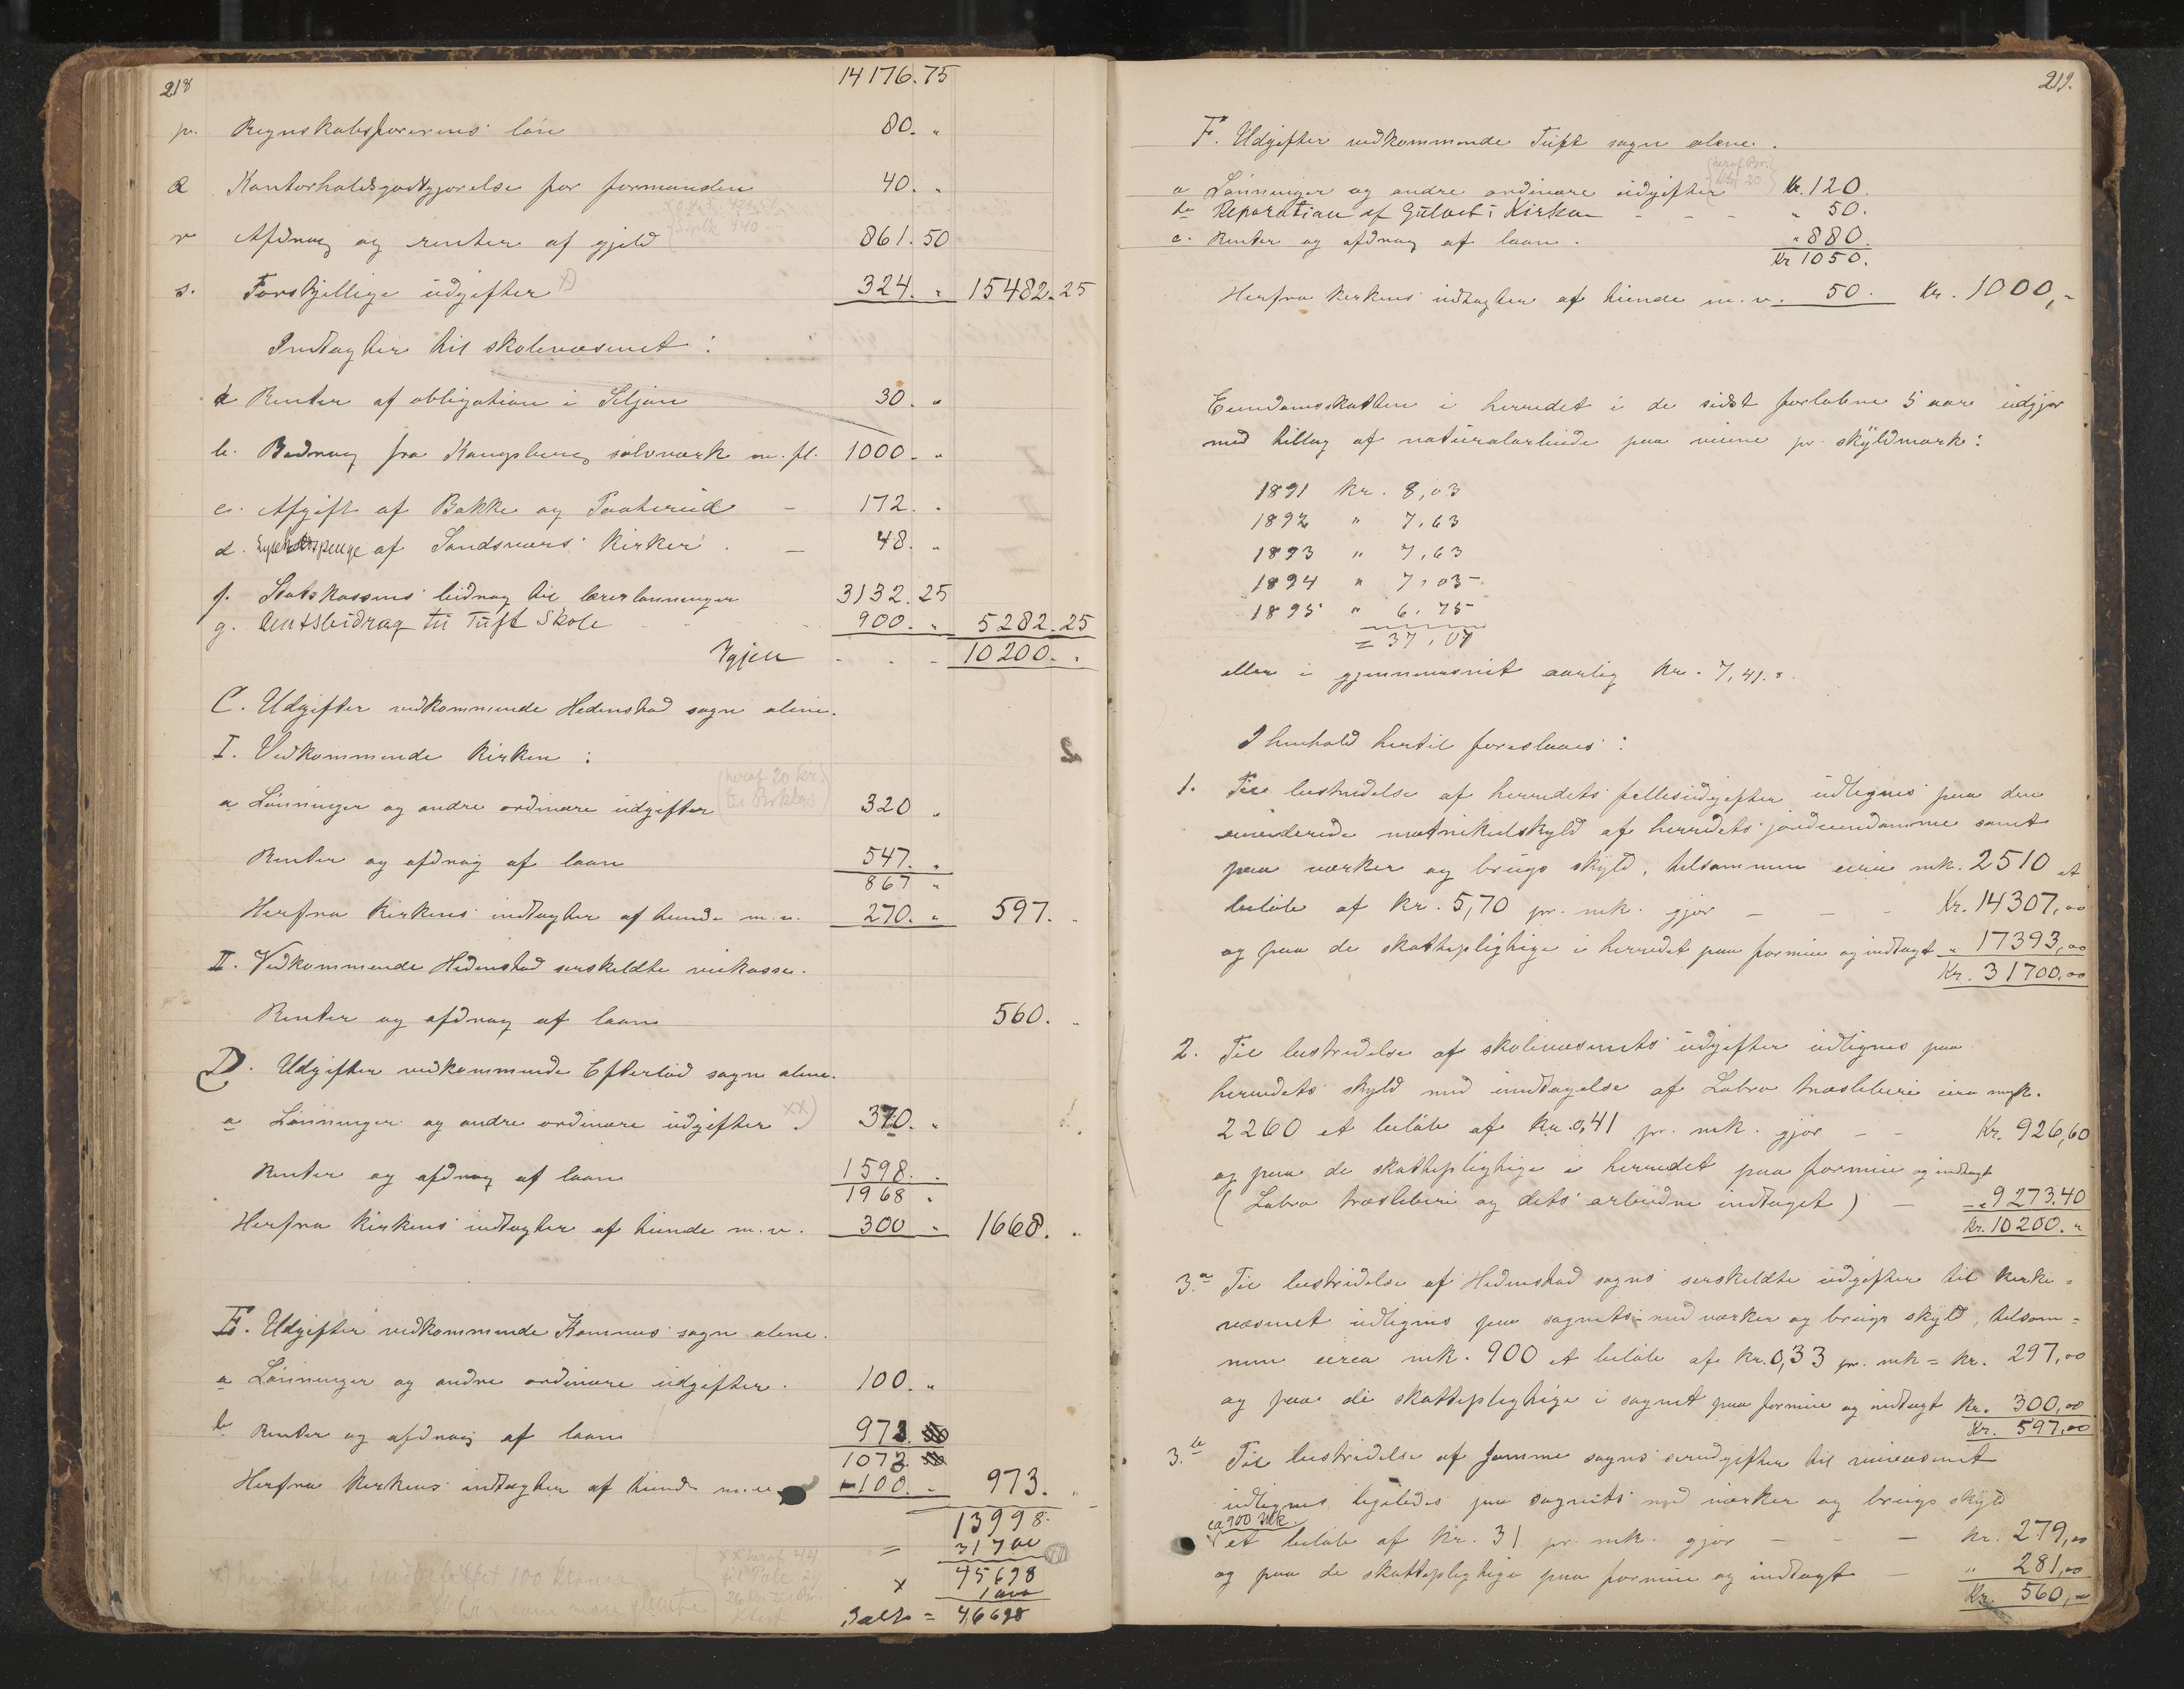 218
14176.75
p. Regnskabsførerens løn 80. "
q Kontorholdsgodtgjørelse for formanden 40. "
r Afdrag og renter af gjeld 861.50
s. Forskjellige udgifter x) 324. " 15482.25
Indtægter til skolevæsenet:
a Renter af obligation i Siljan 30. "
b. Bidrag fra Kongsberg sølvværk m. fl. 1000. "
c. Afgift af Bakke og Taaterud - 172. "
d. af Sandsværs kirker. - 48. "
f. Statskassens bidrag til lærerlønninger 3132.25
g. Amtsbidrag til Tuft Skole 900. " 5282.25
Igjen - - - 10200. "
C. Udgifter vedkommende Hedenstad sogn alene.
I. Vedkommende kirken:
(heraf 20 kr.
a Lønninger og andre ordinære udgifter 320 "
Renter og afdrag af laan 547. "
867 "
Herfra kirkens indtægter af tiende m.v. 270. " 597. "
II. Vedkommende Hedenstad særskildte veikasse.
Renter og afdrag af laan 560. "
D. Udgifter vedkommende Efteløt sogn alene.
a Lønninger og andre ordinære udgifter. xx) 370. "
Renter og afdrag af laan 1598. "
1968 "
Herfra kirkens indtægter af tiende m.v. 300 " 1668. "
E. Udgifter vedkommende Komnes sogn alene.
a Lønninger og andre ordinære udgifter. 100. "
b Renter og afdrag af laan 973.
1073.
Herfra kirkens indtægter af tiende m.v. -100. " 973. "
13998.
= 31700
45698
x 1000
Ialt = 46698
x) indbefattet 100 kroner
xx heraf 44
til
219.
F. Udgifter vedkommende Tuft sogn alene.
(heraf
a Lønninger og andre ordinære udgifter Kr. 120.
b Reparation af Gulvet i Kirken - - - " 50.
c. Renter og afdrag af laan. " 880.
Kr 1050.
Herfra kirkens indtægter af tiende m.v. 50. Kr. 1000,-
Eiendomsskatten i herredet i de sidst forløbne 5 aar udgjør
med tillæg af naturalarbeide paa veiene pr. skyldmark:
1891 Kr. 8,03
1892 " 7,63
1893 " 7,63
1894 " 7,03
1895 " 6,75
= 37,07
eller i gjennemsnit aarlig kr. 7,41.
I henhold hertil foreslaaes:
1. Til bestridelse af herredets fællesudgifter udlignes paa den
reviderede matrikulskyld af herredets jordeiendomme samt
paa værker og brugs skyld, tilsammen cirka mk. 2510 et
beløb af Kr. 5,70 pr. mk. gjør - - - Kr. 14307,00
og paa de skattepligtige i herredet paa formue og indtægt " 17393,00
Kr. 31700,00
2. Til bestridelse af skolevæsenets udgifter udlignes paa
herredets skyld med undtagelse af Labro træsliberi cira mk.
2260 et beløb af Kr. 0,41 pr. mk. gjør - - Kr. 926,60
og paa de skattepligtige i herredet paa formue og indtægt
(Labro træsliberi og dets arbeidere undtaget) - - " 9273.40
Kr. 10200. "
3.a Til bestridelse af Hedenstad sogns særskildte udgifter til kirke=
væsenet udlignes paa sognets med værker og brugs skyld, tilsam=
men circa mk. 900 et beløb af Kr. 0,33 pr. mk = Kr. 297,00
og paa de skattepligtige i sognet paa formue og indtægt Kr. 300,00
Kr. 597,00
3.b Til bestridelse af samme sogns særudgifter til veivæsenet
udlignes ligeledes paa sognets med værker og brugs skyld
ca 900 Mk.
et beløb af Kr. 31 pr. mk. gjør - - - Kr. 279,00
og paa de skattepligtige paa formue og indtægt - " 281,00
Kr. 560,-